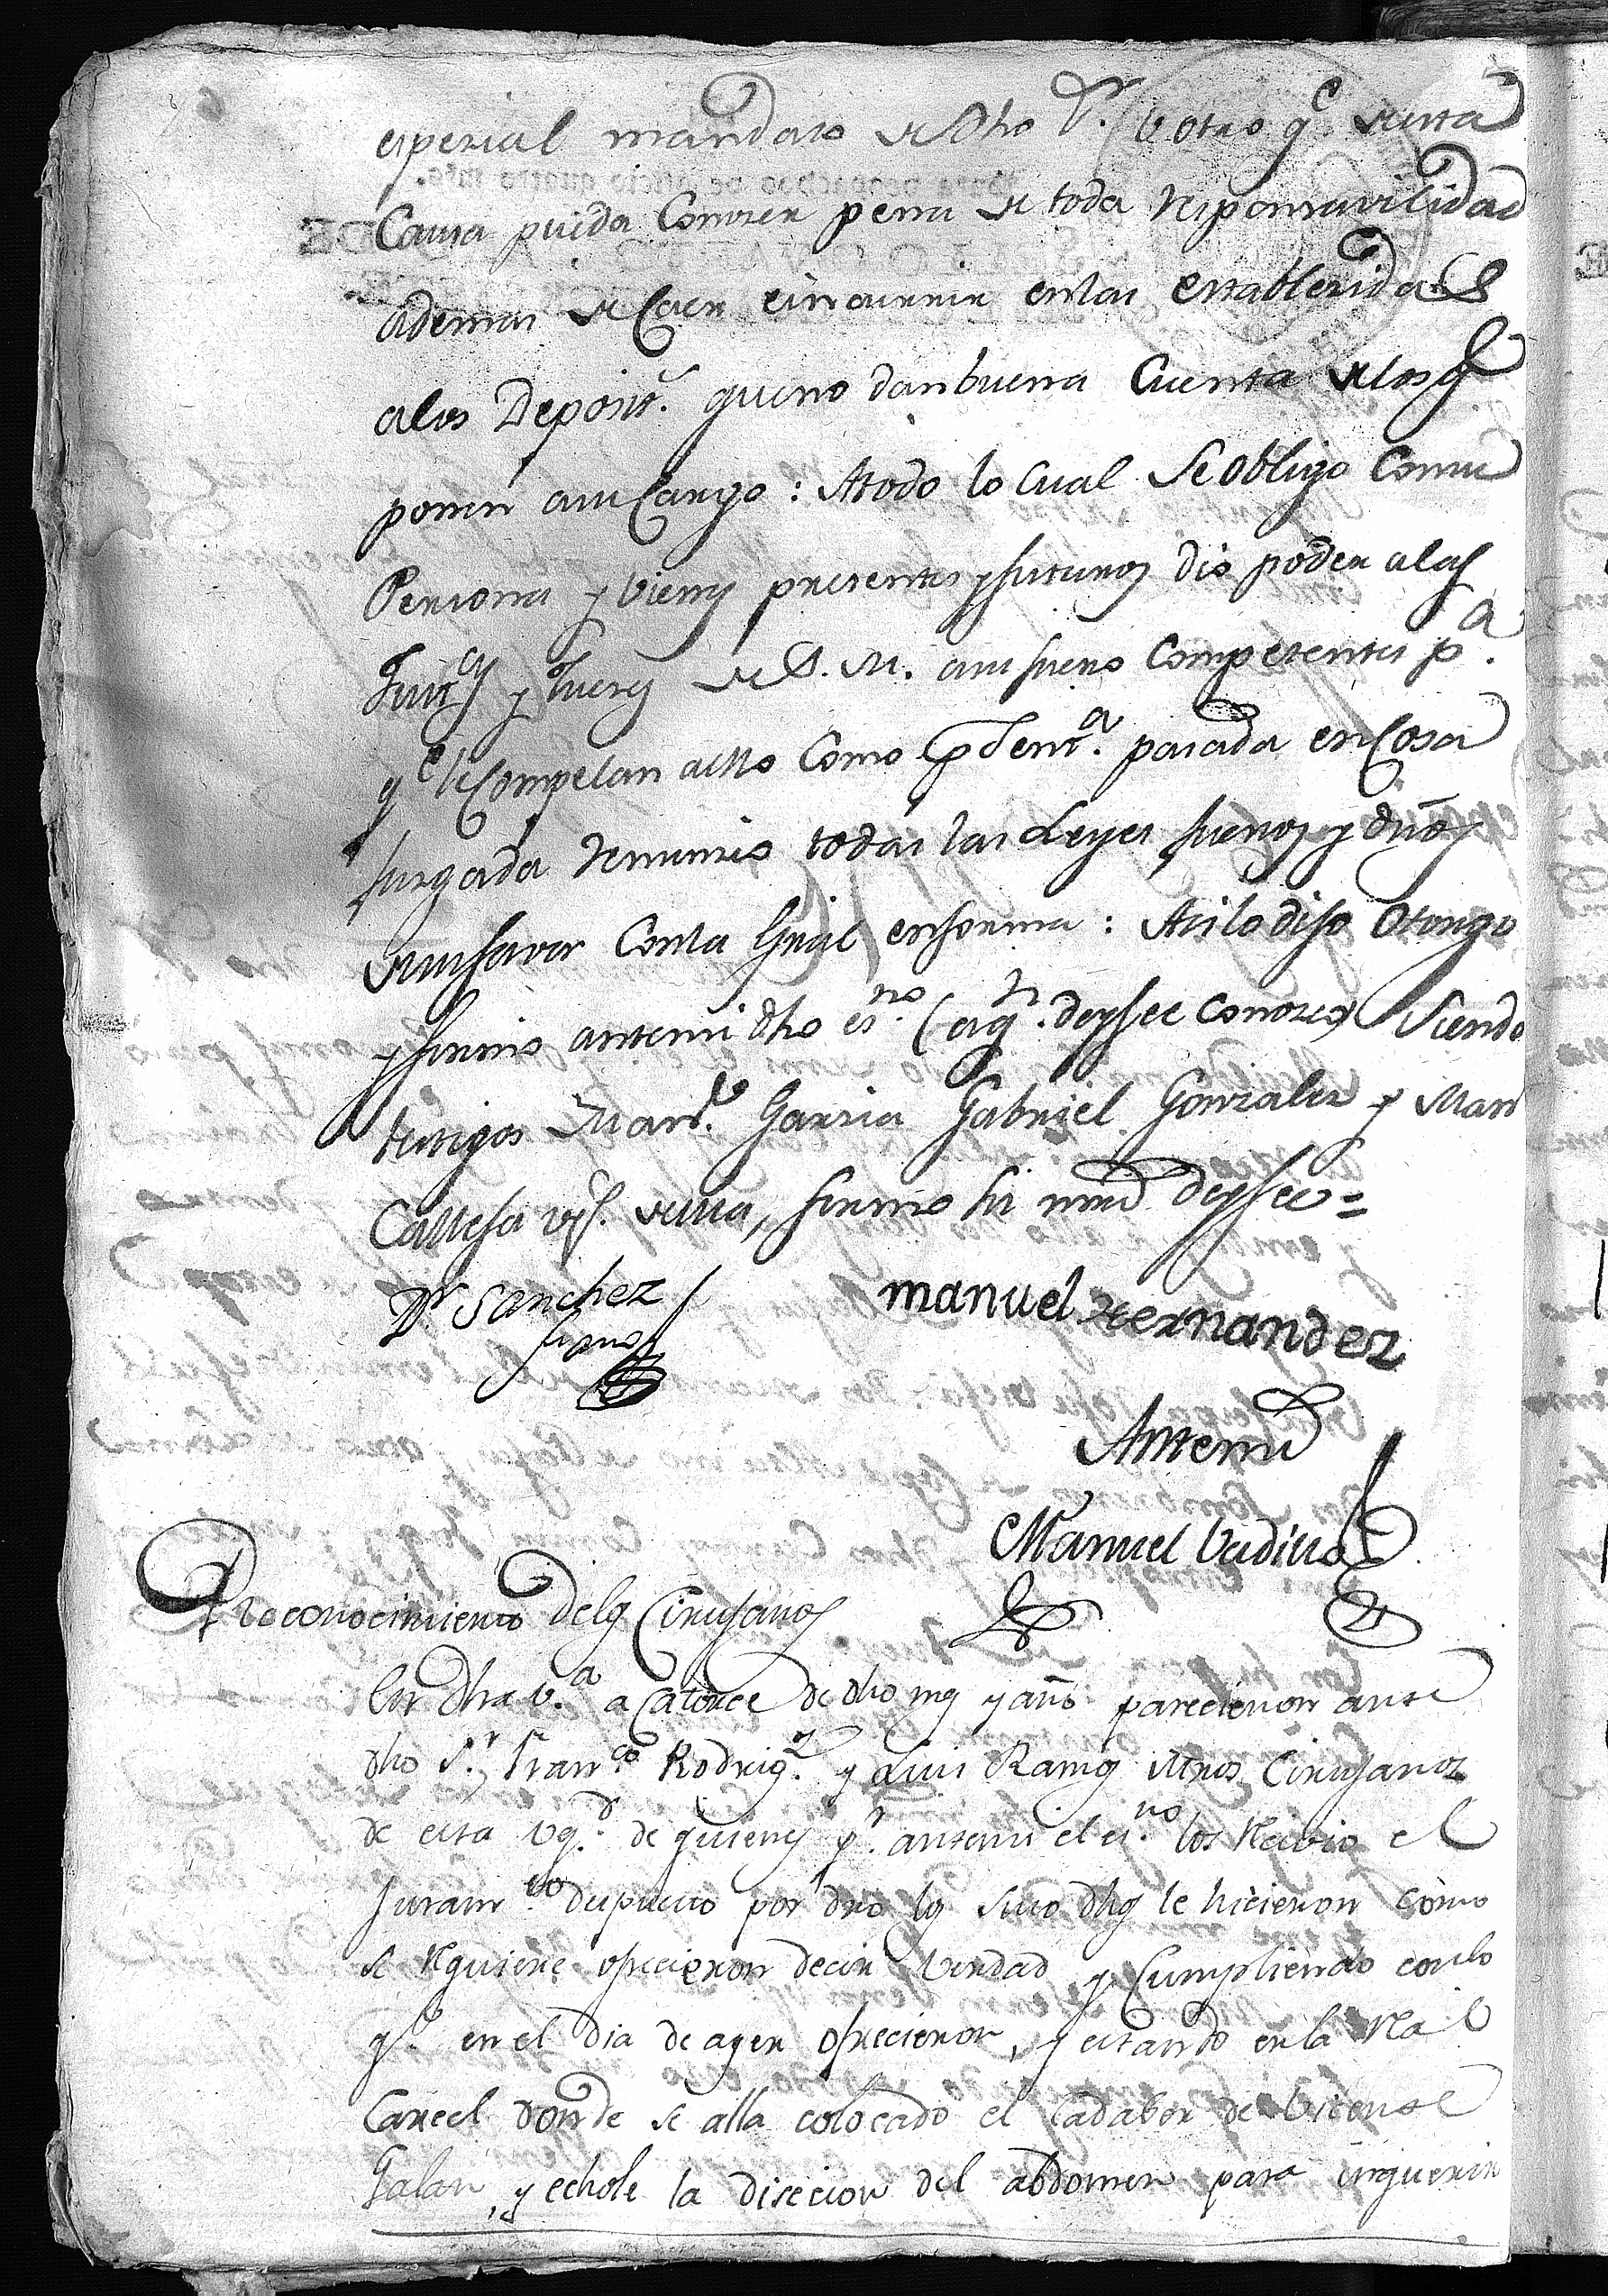 espezial mandato de dho Sr. u otro qe. de esta
Causa pueda Conozer pena de toda responsavilidad
ademas de Caer e incurrir en las establezidas
a los Deposits. que no dan buena Cuenta de los qe
ponen a su Cargo: A todo lo Cual Se obligo Con su
Persona y vienes presentes y futuros dio poder a las
Justcs y Juezes de S. M. a su fuero Competentes pa.
qe le Compelan a ello Como pr Senta. pasada en Cosa
Juzgada renunzio todas las Leyes fueros y dros
de su favor Con la Gral en forma: Asi lo dijo Otorgo
y firmo ante mi dho esno. (a qn. doy fee Conozco) Siendo
testigos Manl. Garzia Gabriel Gonzalez y Man
Calleja vs. de esta, firmo su mrd doy fee =
Dr Sanchez
manuel Hernandez
Ante mi
Manuel Vadillo
Reconocimiento de los Cirujanos
En dha va. a Catorce de dho mes y año parecieron ante
dho Sr. Franco. Rodrigz. y Luis Ramos Mros Cirujanos
de esta vd. de quienes pr. ante mi el esno. los Recivio el
Juramto. dispuesto por dro los suso dhos le hicieron como
se Requiere ofrecieron decir Verdad, y Cumpliendo con lo
qe. en el dia de ayer ofrecieron, y estando en la Real
Carcel donde se alla colocado el Cadaber de Vicente
Galan, y echole la disecion del abdomen para inquerir